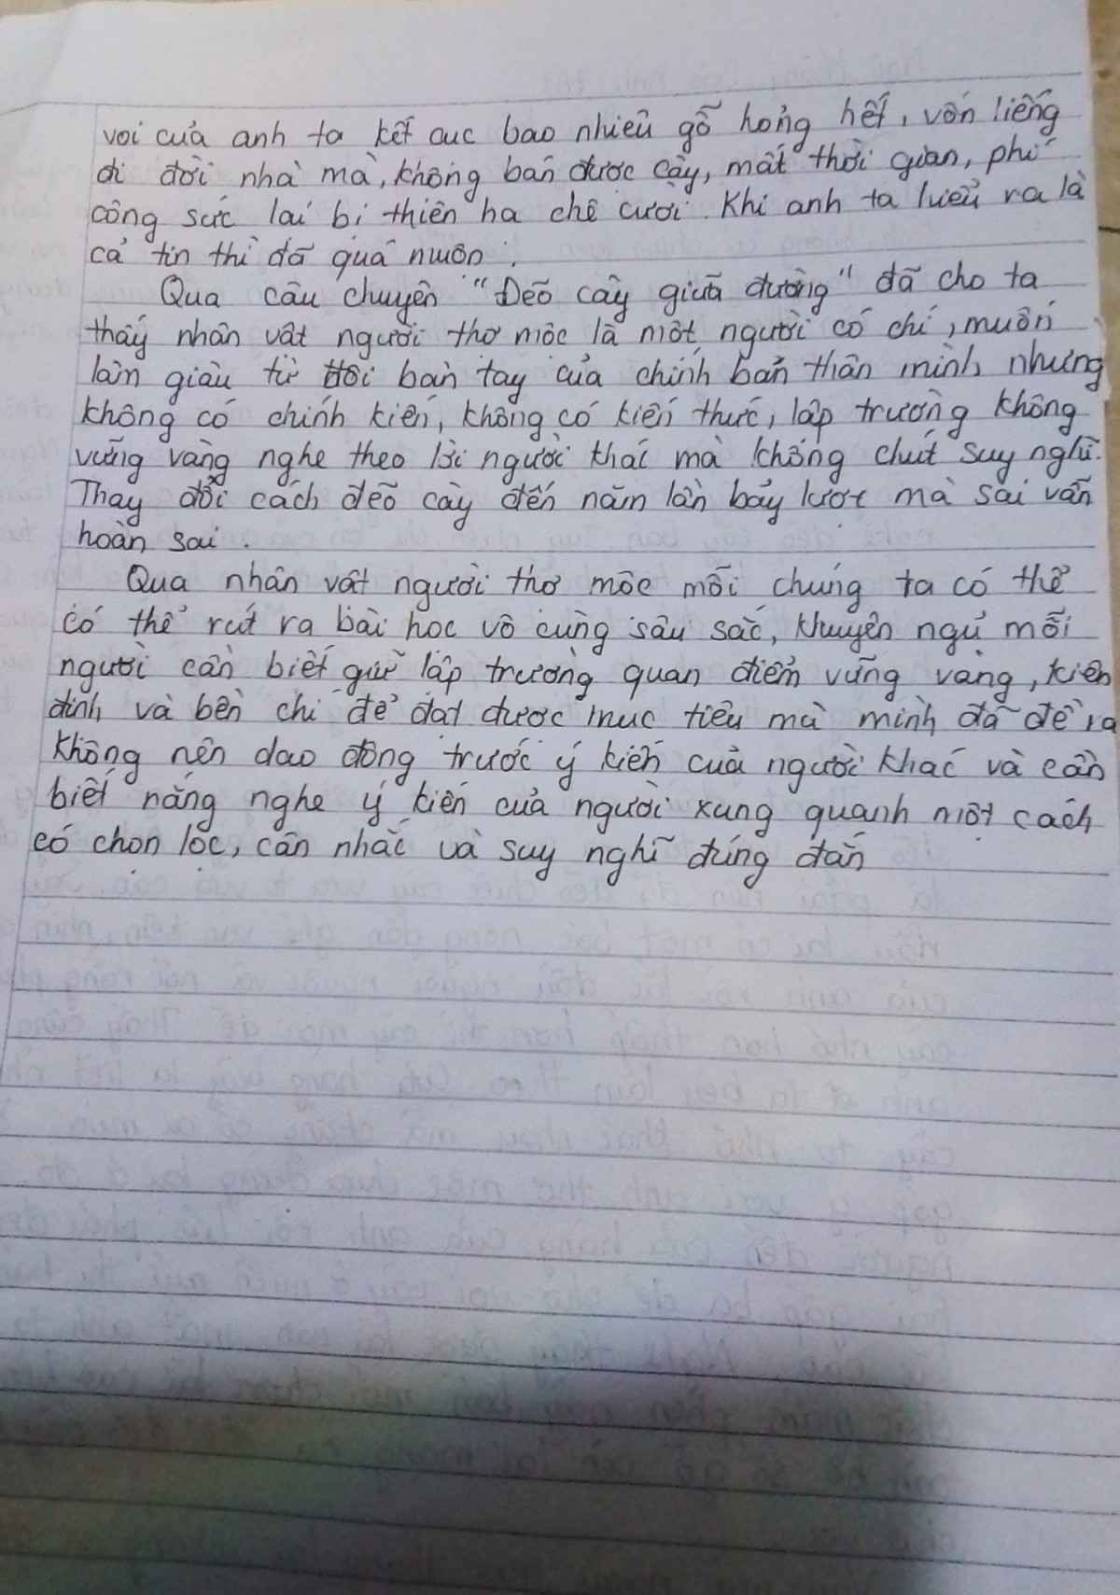 voi của anh ta kết cục bao nhiêu gỗ hỏng hết, vốn liếng
đi đời nhà ma, không bán được cày, mất thời gian, phí
công sức lại bị thiên hạ chê cười. Khi anh ta hiểu ra là
cả tin thì đã quá muộn.
Qua câu chuyện "Đẽo cày giữa đường" đã cho ta
thấy nhân vật người thợ mộc là một người có chí, muốn
làm giàu từ đôi bàn tay của chính bản thân mình nhưng
không có chính kiến, không có kiến thức, lập trường không
vững vàng nghe theo lời người khác mà không chút suy nghĩ.
Thay đổi cách đẽo cày đến năm lần bảy lượt mà sai vẫn
hoàn sai.
Qua nhân vật người thợ mộc mỗi chúng ta có thể
có thể rút ra bài học vô cùng sâu sắc, khuyên ngủ mỗi
người cần biết giữ lập trường quan điểm vững vàng, kiên
định và bền chí để đạt được mục tiêu mà mình đã đề ra
không nên dao động trước ý kiến của người khác và cần
biết nắng nghe ý kiến của người xung quanh một cách
có chọn lọc, cân nhắc và suy nghĩ đúng đắn